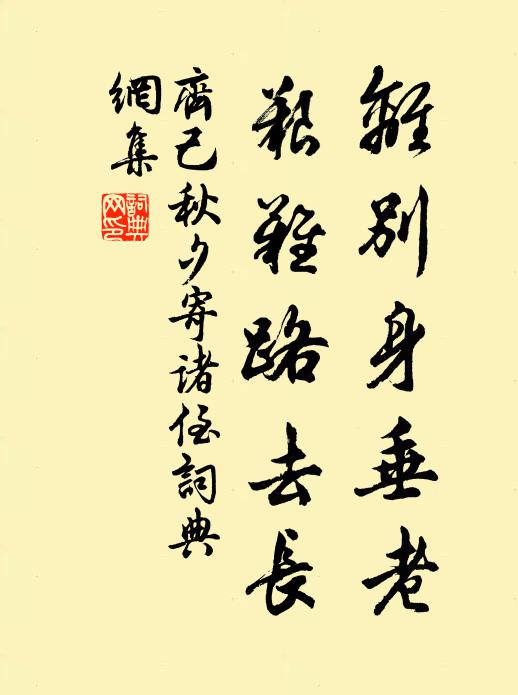 離別身垂老
艱難路去長
齊己秋夕寄諸侄詞典
網集
詞典
网印